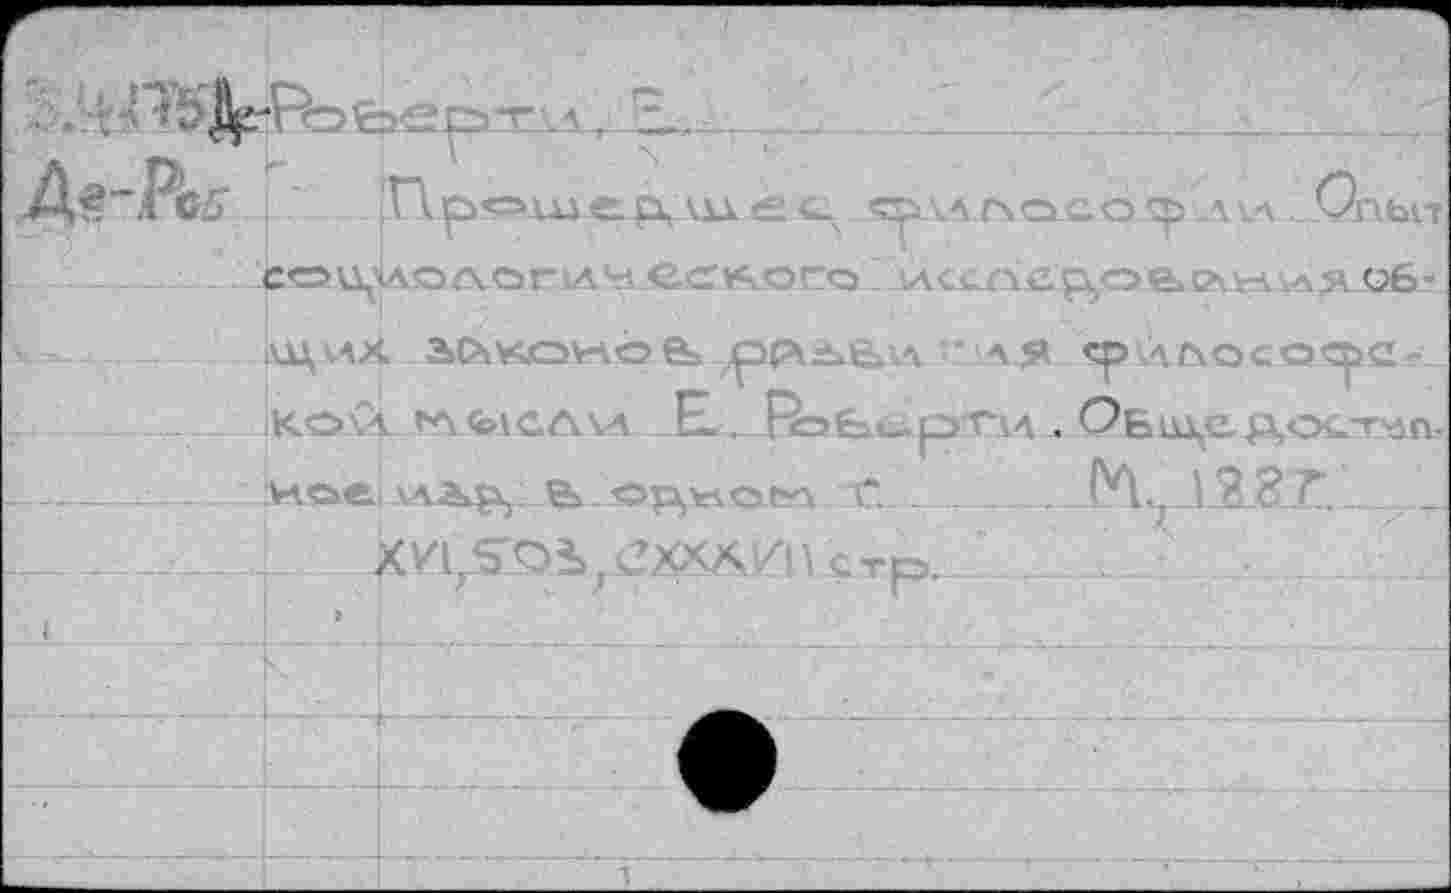 Де-Роберти, Е.
Де-Роб Прошедшее философии. Опыт
социологического исследования об-
щих законов развития философс-
кой мысли Е. Роберти. Общедоступ-
ное изд, в одном т. М., 1887.
XVI, 503, CXXXVII стр.